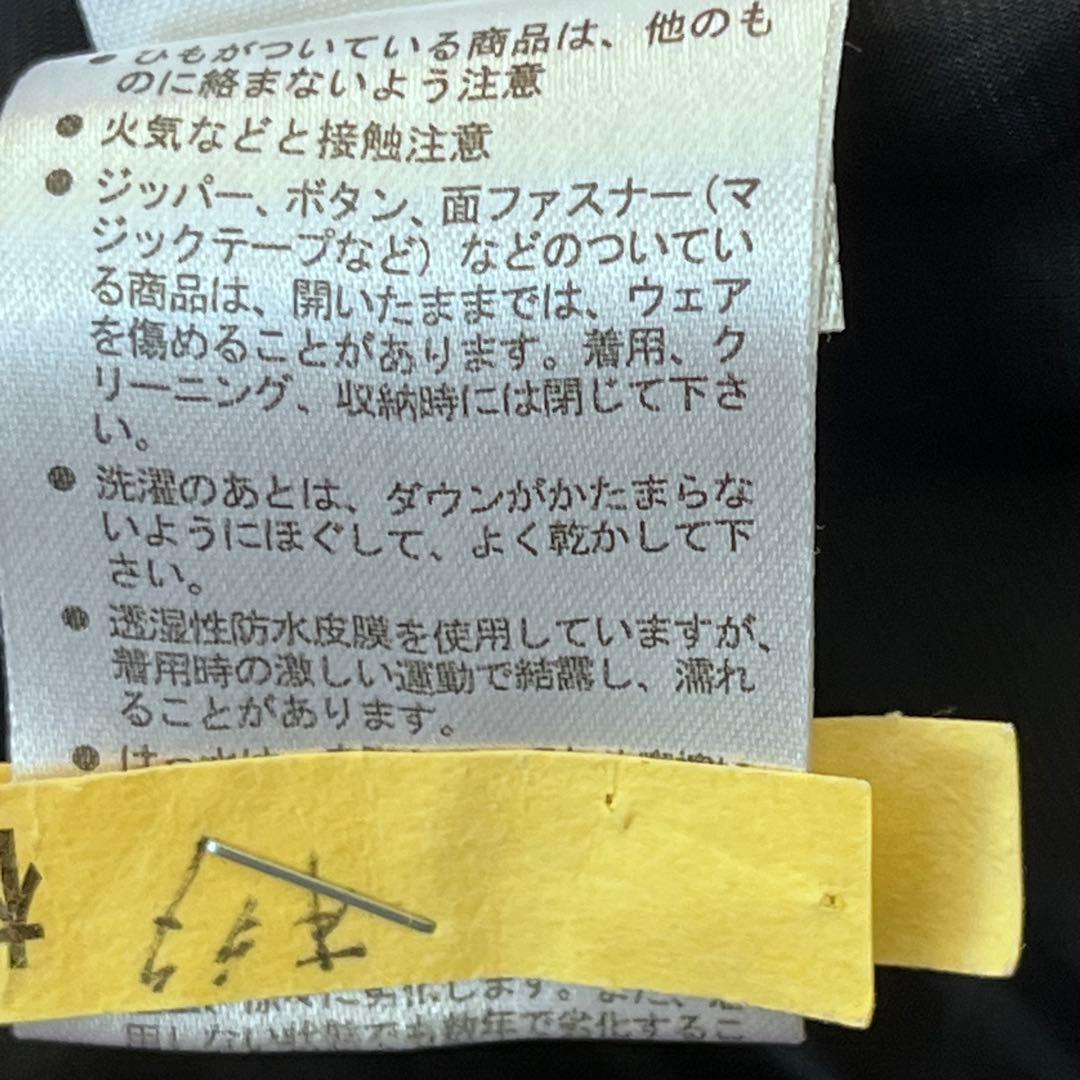 ● ひもがついている商品は、他のも
のに絡まないよう注意
● 火気などと接触注意
● ジッパー、ボタン、面ファスナー（マ
ジックテープなど）などのついてい
る商品は、開いたままでは、ウェア
を傷めることがあります。着用、ク
リーニング、収納時には閉じて下さ
い。
● 洗濯のあとは、ダウンがかたまらな
いようにほぐして、よく乾かして下
さい。
● 透湿性防水皮膜を使用していますが、
着用時の激しい運動で結露し、濡れ
ることがあります。
● はっ水は、
に劣化します。また、
用しない状態でも数年で劣化するこ